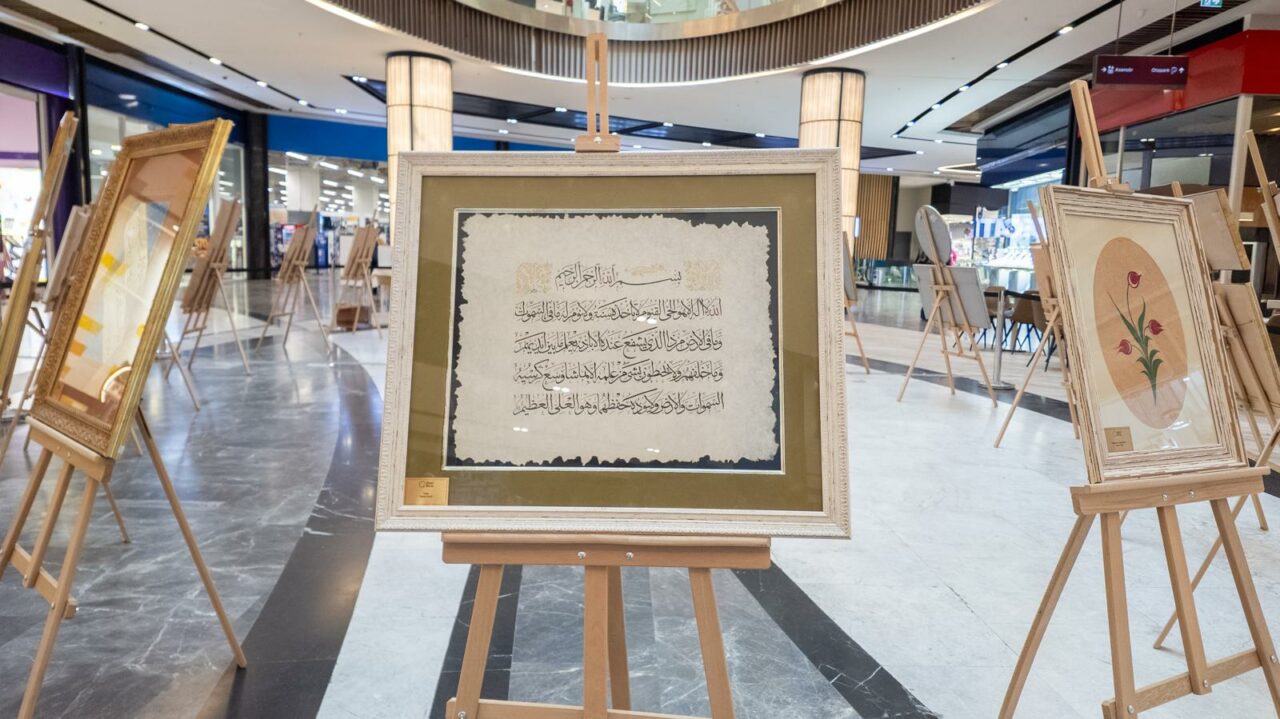 Asansör Otopark
بسم الله الرحمن الرحيم
الله لا اله الا هو الحي القيوم لا تأخذه سنة ولا نوم له ما في السموات
وما في الارض من ذا الذي يشفع عنده الا باذنه يعلم ما بين ايديهم
وما خلفهم ولا يحيطون بشئ من علمه الا بما شاء وسع كرسيه
السموات والارض ولا يؤده حفظهما وهو العلي العظيم